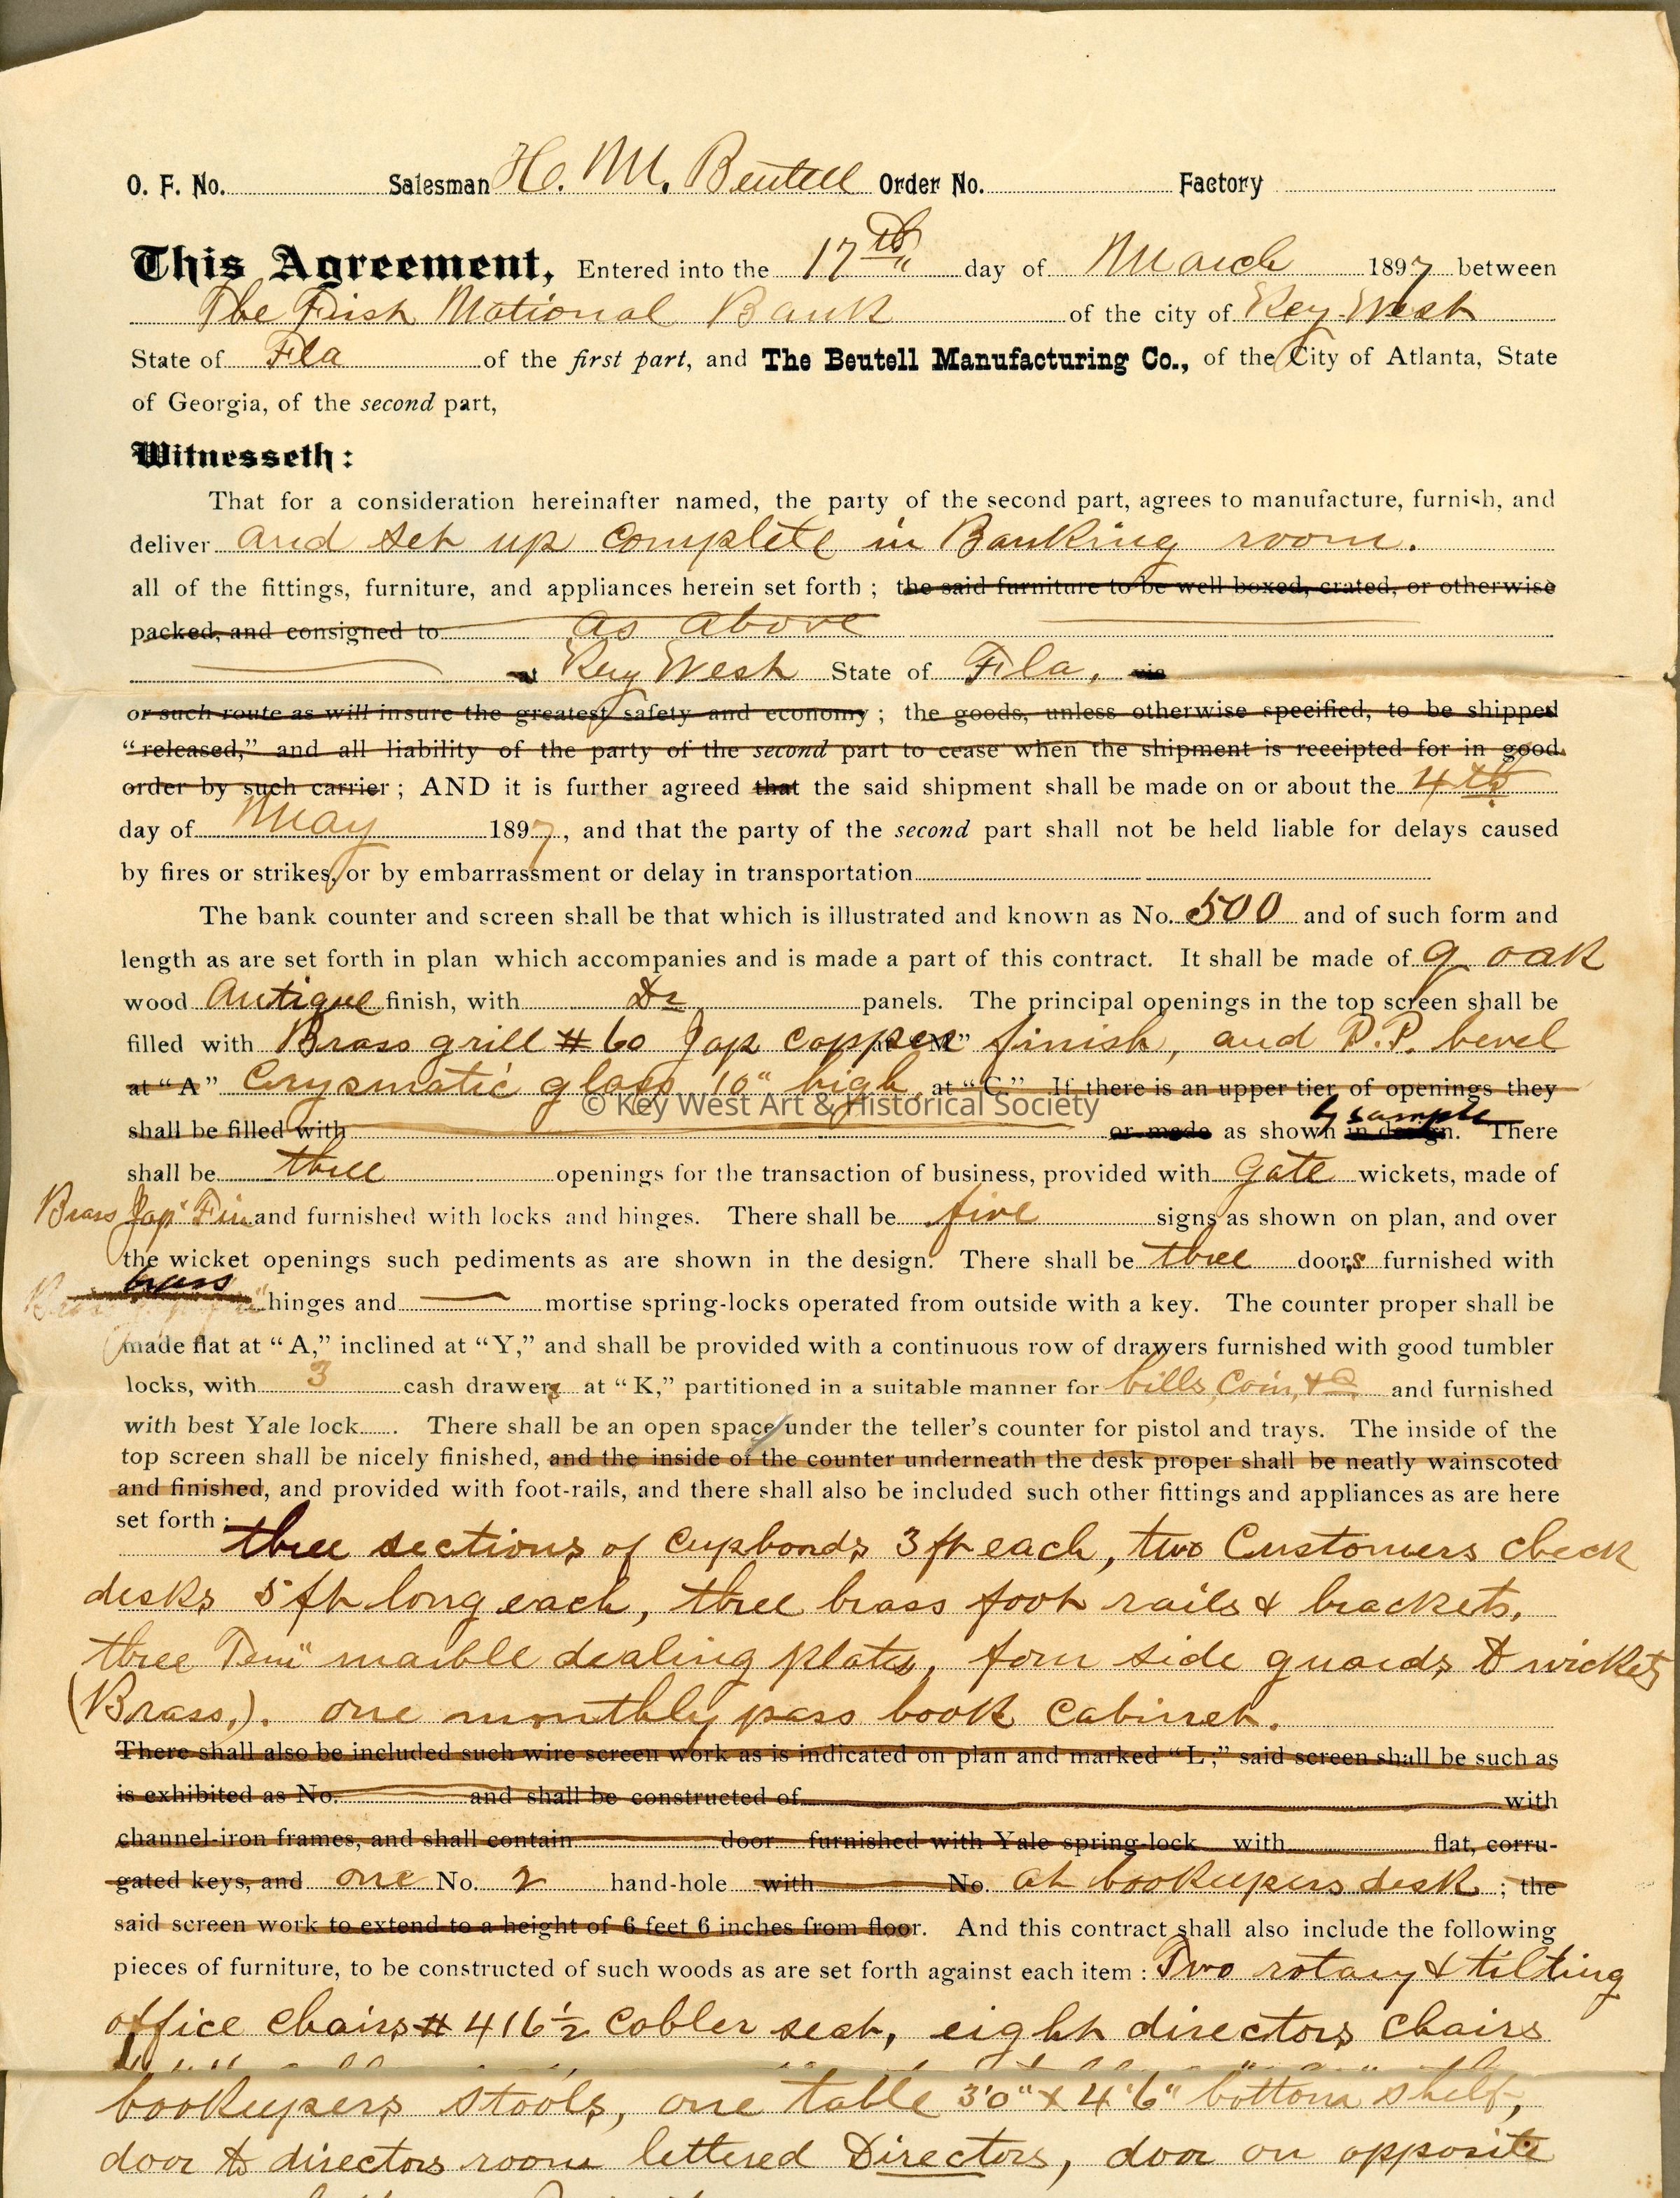 O. F. No. Salesman H. M. Beutell Order No. Factory
This Agreement, Entered into the 17th day of March 1897 between
The First National Bank of the city of Key West
State of Fla of the first part, and The Beutell Manufacturing Co., of the City of Atlanta, State
of Georgia, of the second part,
Witnesseth:
That for a consideration hereinafter named, the party of the second part, agrees to manufacture, furnish, and
deliver and set up complete in Banking room.
all of the fittings, furniture, and appliances herein set forth ; the said furniture to be well boxed, crated, or otherwise
packed, and consigned to as above
at Key West State of Fla, via
or such route as will insure the greatest safety and economy ; the goods, unless otherwise specified, to be shipped
“released,” and all liability of the party of the second part to cease when the shipment is receipted for in good
order by such carrier ; AND it is further agreed that the said shipment shall be made on or about the 4th
day of May 1897, and that the party of the second part shall not be held liable for delays caused
by fires or strikes, or by embarrassment or delay in transportation
The bank counter and screen shall be that which is illustrated and known as No. 500 and of such form and
length as are set forth in plan which accompanies and is made a part of this contract. It shall be made of q oak
wood Antique finish, with Do panels. The principal openings in the top screen shall be
filled with Brass grill #60 Jap copper at “M” finish, and P.P. bevel
at “A” Crysmatic glass 10" high, at “C.” If there is an upper tier of openings they
© Key West Art & Historical Society
shall be filled with or made as shown in design. by sample There
shall be three openings for the transaction of business, provided with Gate wickets, made of
Brass Jap" Fin and furnished with locks and hinges. There shall be five signs as shown on plan, and over
the wicket openings such pediments as are shown in the design. There shall be three doors furnished with
brass hinges and mortise spring-locks operated from outside with a key. The counter proper shall be
made flat at “A,” inclined at “Y,” and shall be provided with a continuous row of drawers furnished with good tumbler
locks, with 3 cash drawers at “K,” partitioned in a suitable manner for bills, Coin, &c and furnished
with best Yale lock. There shall be an open space under the teller’s counter for pistol and trays. The inside of the
top screen shall be nicely finished, and the inside of the counter underneath the desk proper shall be neatly wainscoted
and finished, and provided with foot-rails, and there shall also be included such other fittings and appliances as are here
set forth :
three sections of cupbords 3 ft each, two Customers check
desks 5 ft long each, three brass foot rails & brackets,
three Tenn" marble dealing plates, four side guards to wickets
(Brass,). one monthly pass book Cabinet.
There shall also be included such wire screen work as is indicated on plan and marked “L ;” said screen shall be such as
is exhibited as No. and shall be constructed of with
channel-iron frames, and shall contain door furnished with Yale spring-lock with flat, corru-
gated keys, and one No. 2 hand-hole with No. at bookeepers desk ; the
said screen work to extend to a height of 6 feet 6 inches from floor. And this contract shall also include the following
pieces of furniture, to be constructed of such woods as are set forth against each item : Two rotary & tilting
office chairs #416½ Cobler seat, eight directors chairs
bookeepers stools, one table 3'0" x 4'6" bottom shelf,
door to directors room lettered Directors, door on opposite